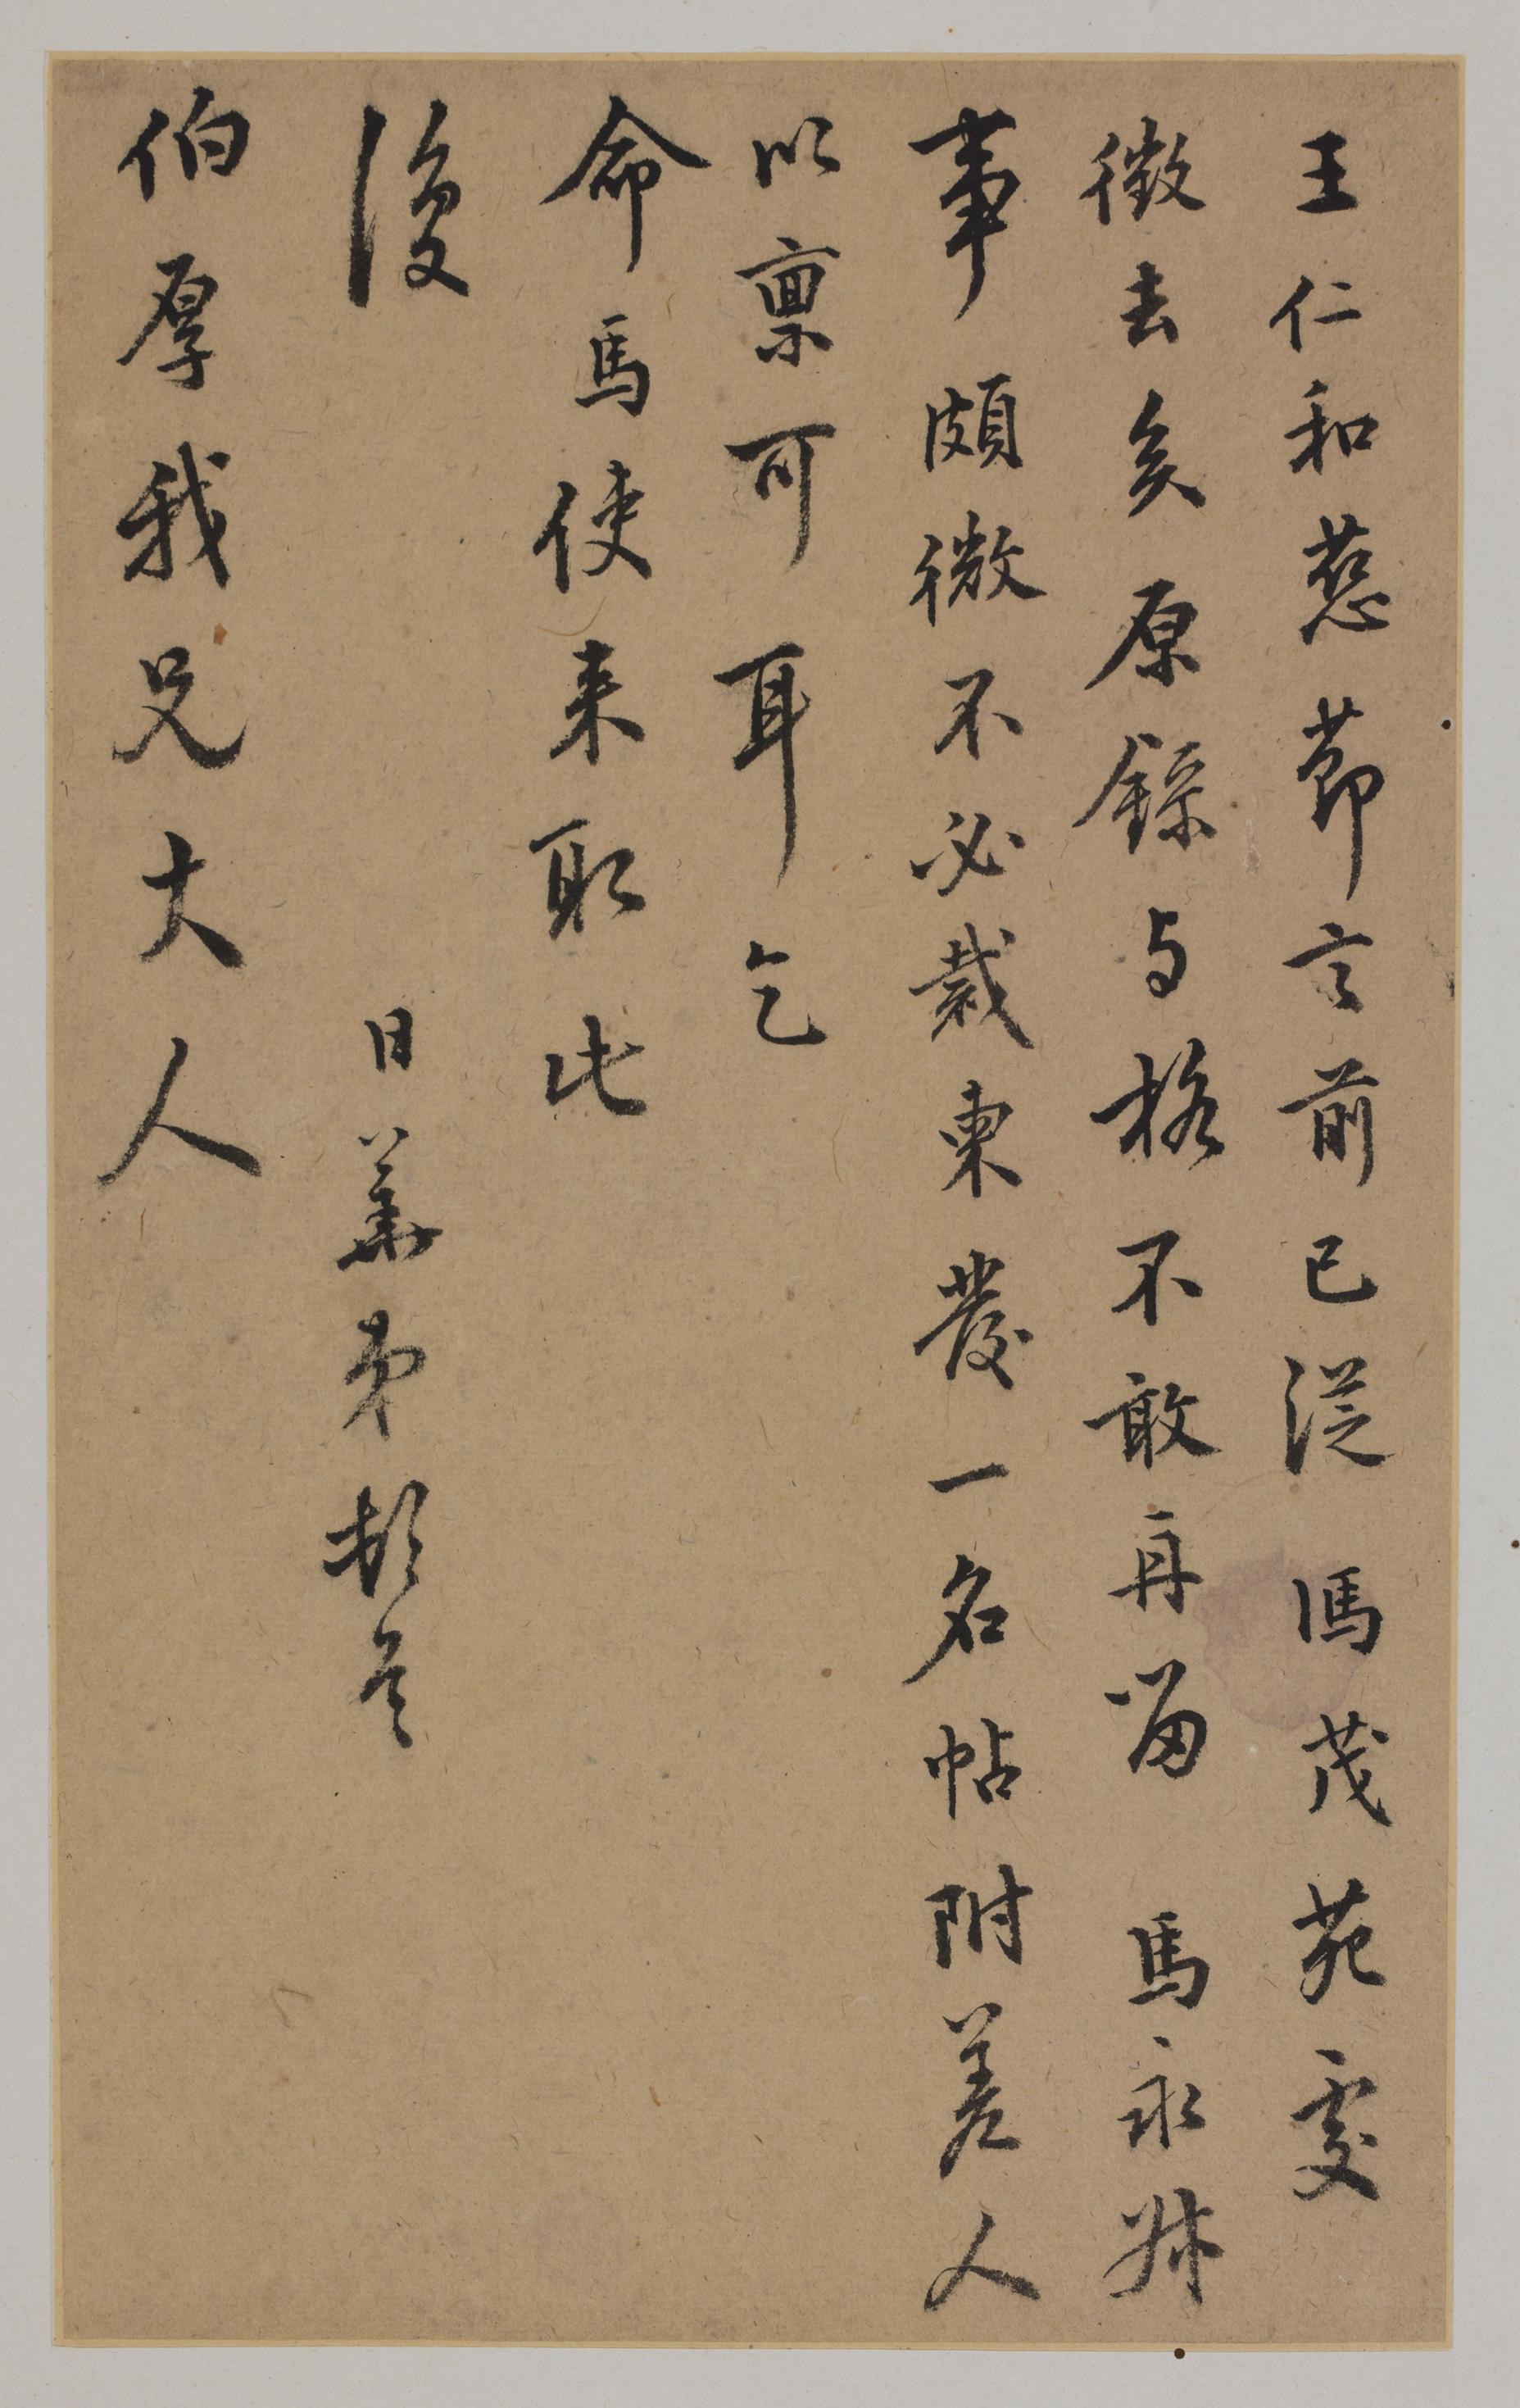 王仁和慈節前已從馮茂苑處
徵去矣原錄与格不敢再留馬永
事頗微不必裁柬發一名帖附差人
以稟可耳乞
命馬使来取此
復
日弟頓首
伯厚我兄大人